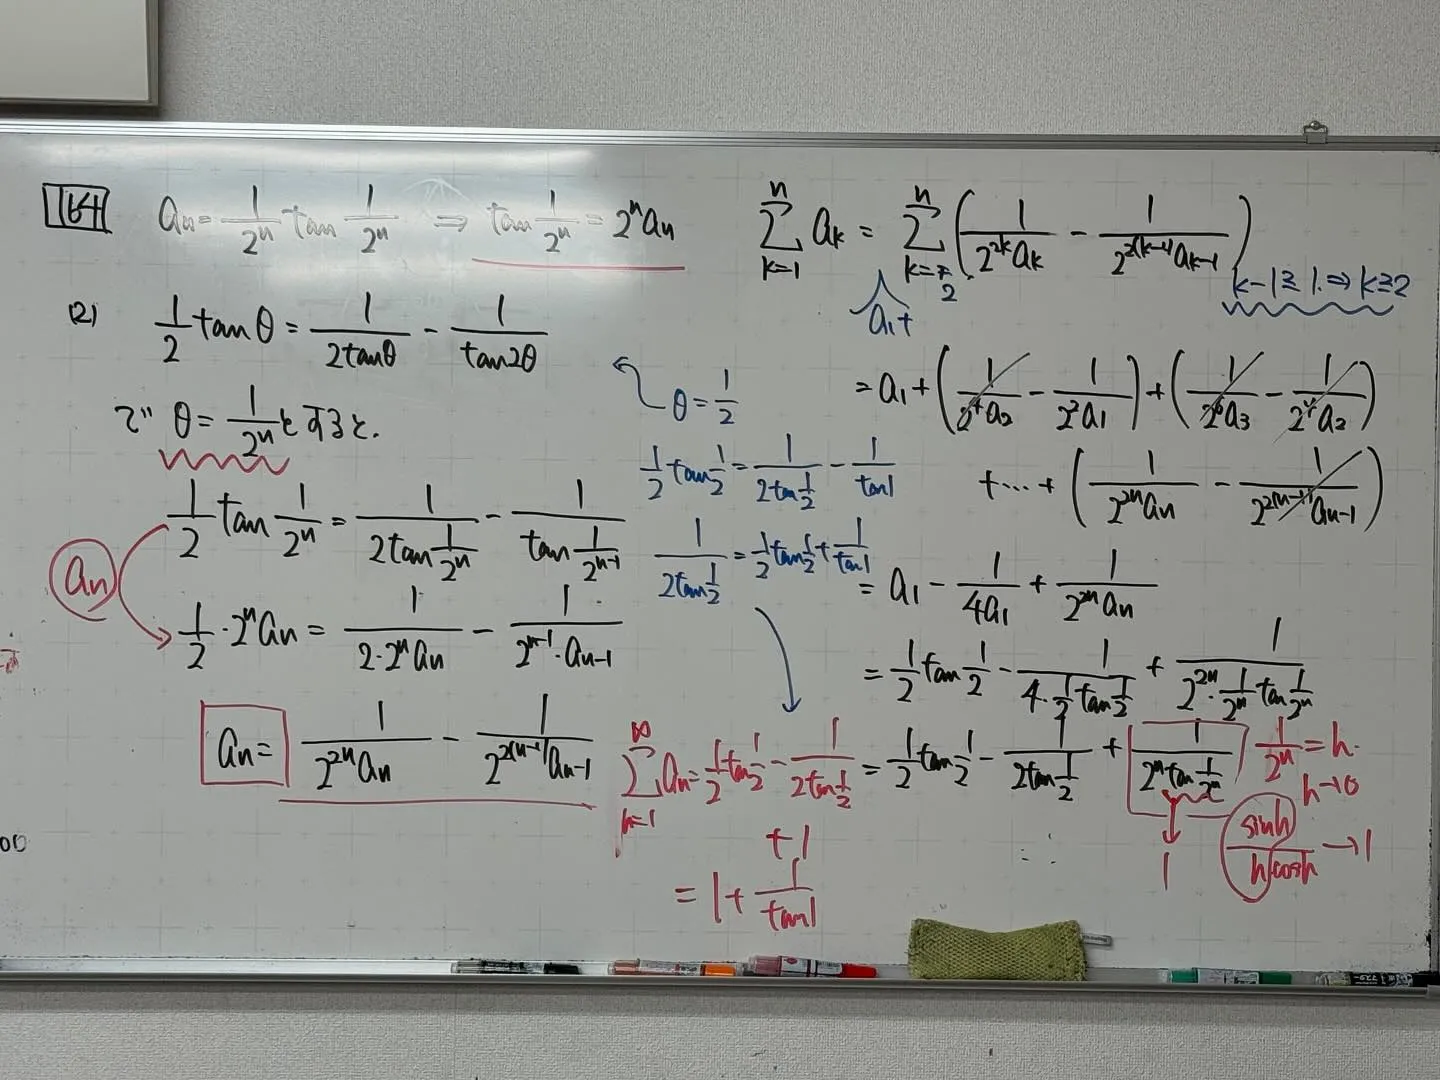 164 aₙ = 1/2ⁿ tan 1/2ⁿ ⇒ tan 1/2ⁿ = 2ⁿaₙ
(2) 1/2 tanθ = 1/(2tanθ) - 1/(tan2θ)
で θ = 1/2ⁿ とすると.
1/2 tan 1/2ⁿ = 1/(2tan 1/2ⁿ) - 1/(tan 1/2ⁿ⁻¹)
aₙ
1/2 · 2ⁿaₙ = 1/(2·2ⁿaₙ) - 1/(2ⁿ⁻¹·aₙ₋₁)
aₙ = 1/(2²ⁿaₙ) - 1/(2²⁽ⁿ⁻¹⁾aₙ₋₁)
θ = 1/2
1/2 tan 1/2 = 1/(2tan 1/2) - 1/tan1
1/(2tan 1/2) = 1/2 tan 1/2 + 1/tan1
∞Σn=1 aₙ = 1/2 tan 1/2 - 1/(2tan 1/2)
+1
= 1 + 1/tan1
nΣk=1 aₖ = nΣk=2 (1/(2²ᵏaₖ) - 1/(2²⁽ᵏ⁻¹⁾aₖ₋₁))
k-1≧1. ⇒ k≧2
a₁+
= a₁ + (1/(2⁴a₂) - 1/(2²a₁)) + (1/(2⁶a₃) - 1/(2⁴a₂))
+ ⋯ + (1/(2²ⁿaₙ) - 1/(2²⁽ⁿ⁻¹⁾aₙ₋₁))
= a₁ - 1/(4a₁) + 1/(2²ⁿaₙ)
= 1/2 tan 1/2 - 1/(4·1/2 tan 1/2) + 1/(2²ⁿ·1/2ⁿ tan 1/2ⁿ)
= 1/2 tan 1/2 - 1/(2tan 1/2) + 1/(2ⁿ tan 1/2ⁿ)
1/2ⁿ = h.
h→0
1
sinh/(h cosh) → 1